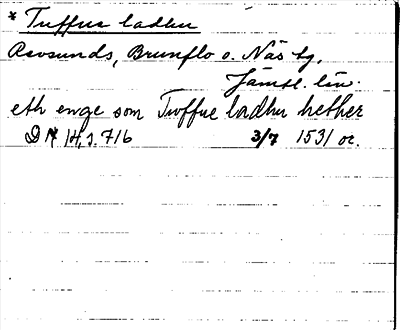 * Tuffue ladhu
Revsunds, Brunflo o. Näs tg.
Jämtl. län.
eth enge som Twffue ladhu hether
DN 14, s. 716 3/7 1531 or.